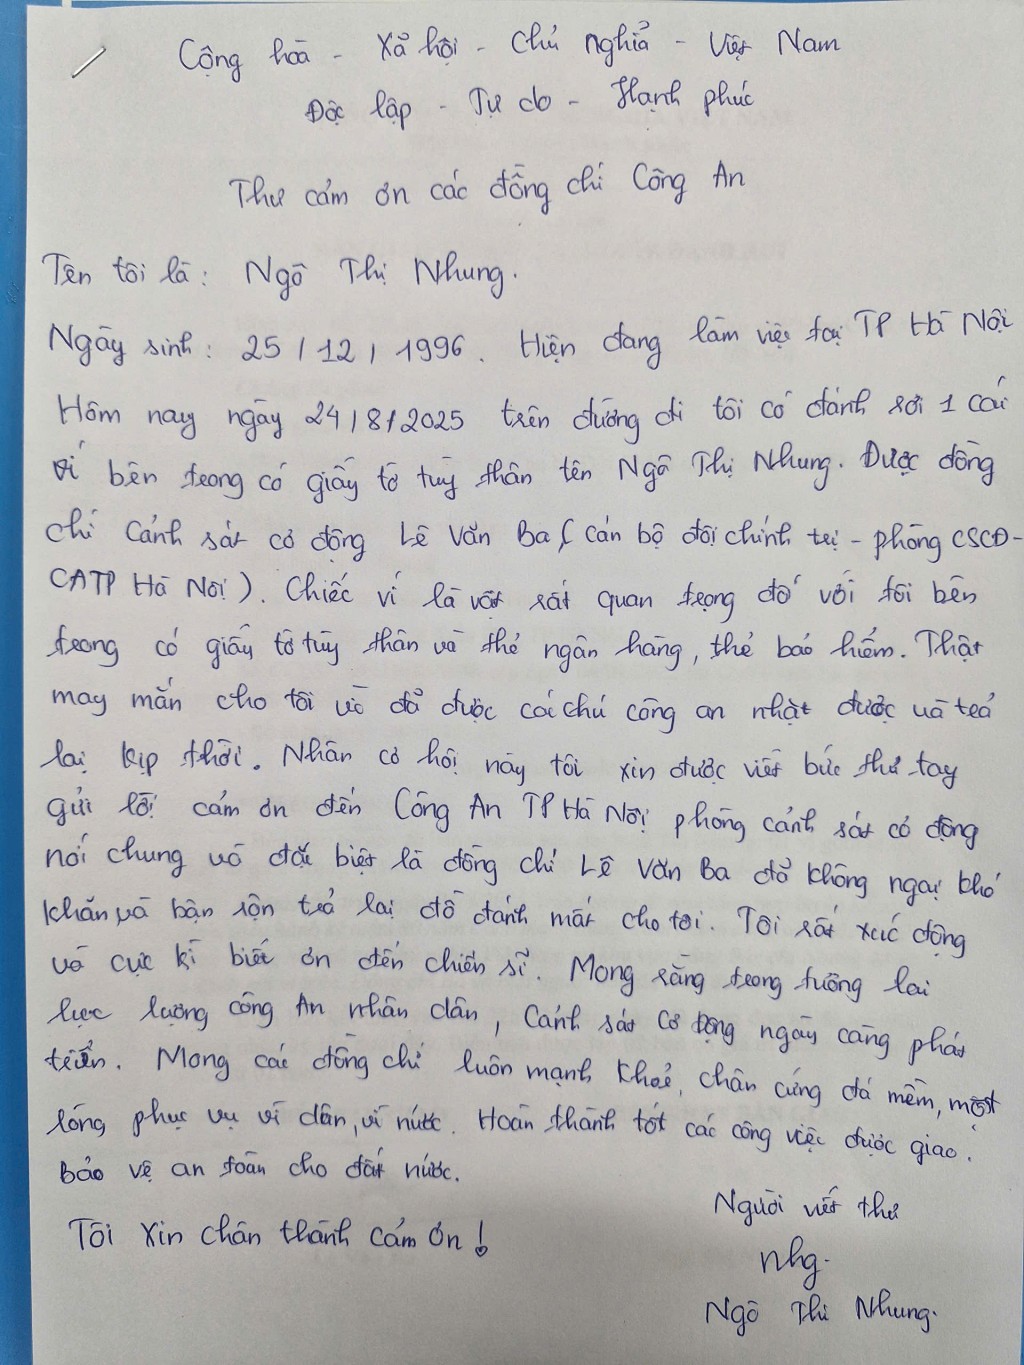 Cộng hoà - Xã hội - Chủ nghĩa - Việt Nam
Độc lập - Tự do - Hạnh phúc
Thư cảm ơn các đồng chí Công An
Tên tôi là : Ngô Thị Nhung.
Ngày sinh : 25 / 12 / 1996. Hiện đang làm việc tại TP Hà Nội
Hôm nay ngày 24/8/2025 trên đường đi tôi có đánh rơi 1 cái
ví bên trong có giấy tờ tùy thân tên Ngô Thị Nhung. Được đồng
chí Cảnh sát cơ động Lê Văn Ba ( cán bộ đội chính trị - phòng CSCĐ-
CATP Hà Nội ). Chiếc ví là vật rất quan trọng đố với tôi bên
trong có giấy tờ tùy thân và thẻ ngân hàng, thẻ bảo hiểm. Thật
may mắn cho tôi vì đã được các chú công an nhặt được và trả
lại kịp thời. Nhân cơ hội này tôi xin được viết bức thư tay
gửi lời cảm ơn đến Công An TP Hà Nội phòng cảnh sát cơ động
nói chung và đặc biệt là đồng chí Lê Văn Ba đã không ngại khó
khăn và bận rộn trả lại đồ đánh mất cho tôi. Tôi rất xúc động
và cực kì biết ơn đến chiến sĩ. Mong rằng trong tương lai
lực lượng công An nhân dân, Cảnh sát Cơ động ngày càng phát
triển. Mong các đồng chí luôn mạnh khoẻ, chân cứng đá mềm, một
lòng phục vụ vì dân, vì nước. Hoàn thành tốt các công việc được giao.
bảo vệ an toàn cho đất nước.
Tôi xin chân thành cảm ơn !
Người viết thư
Nhg.
Ngô Thị Nhung.